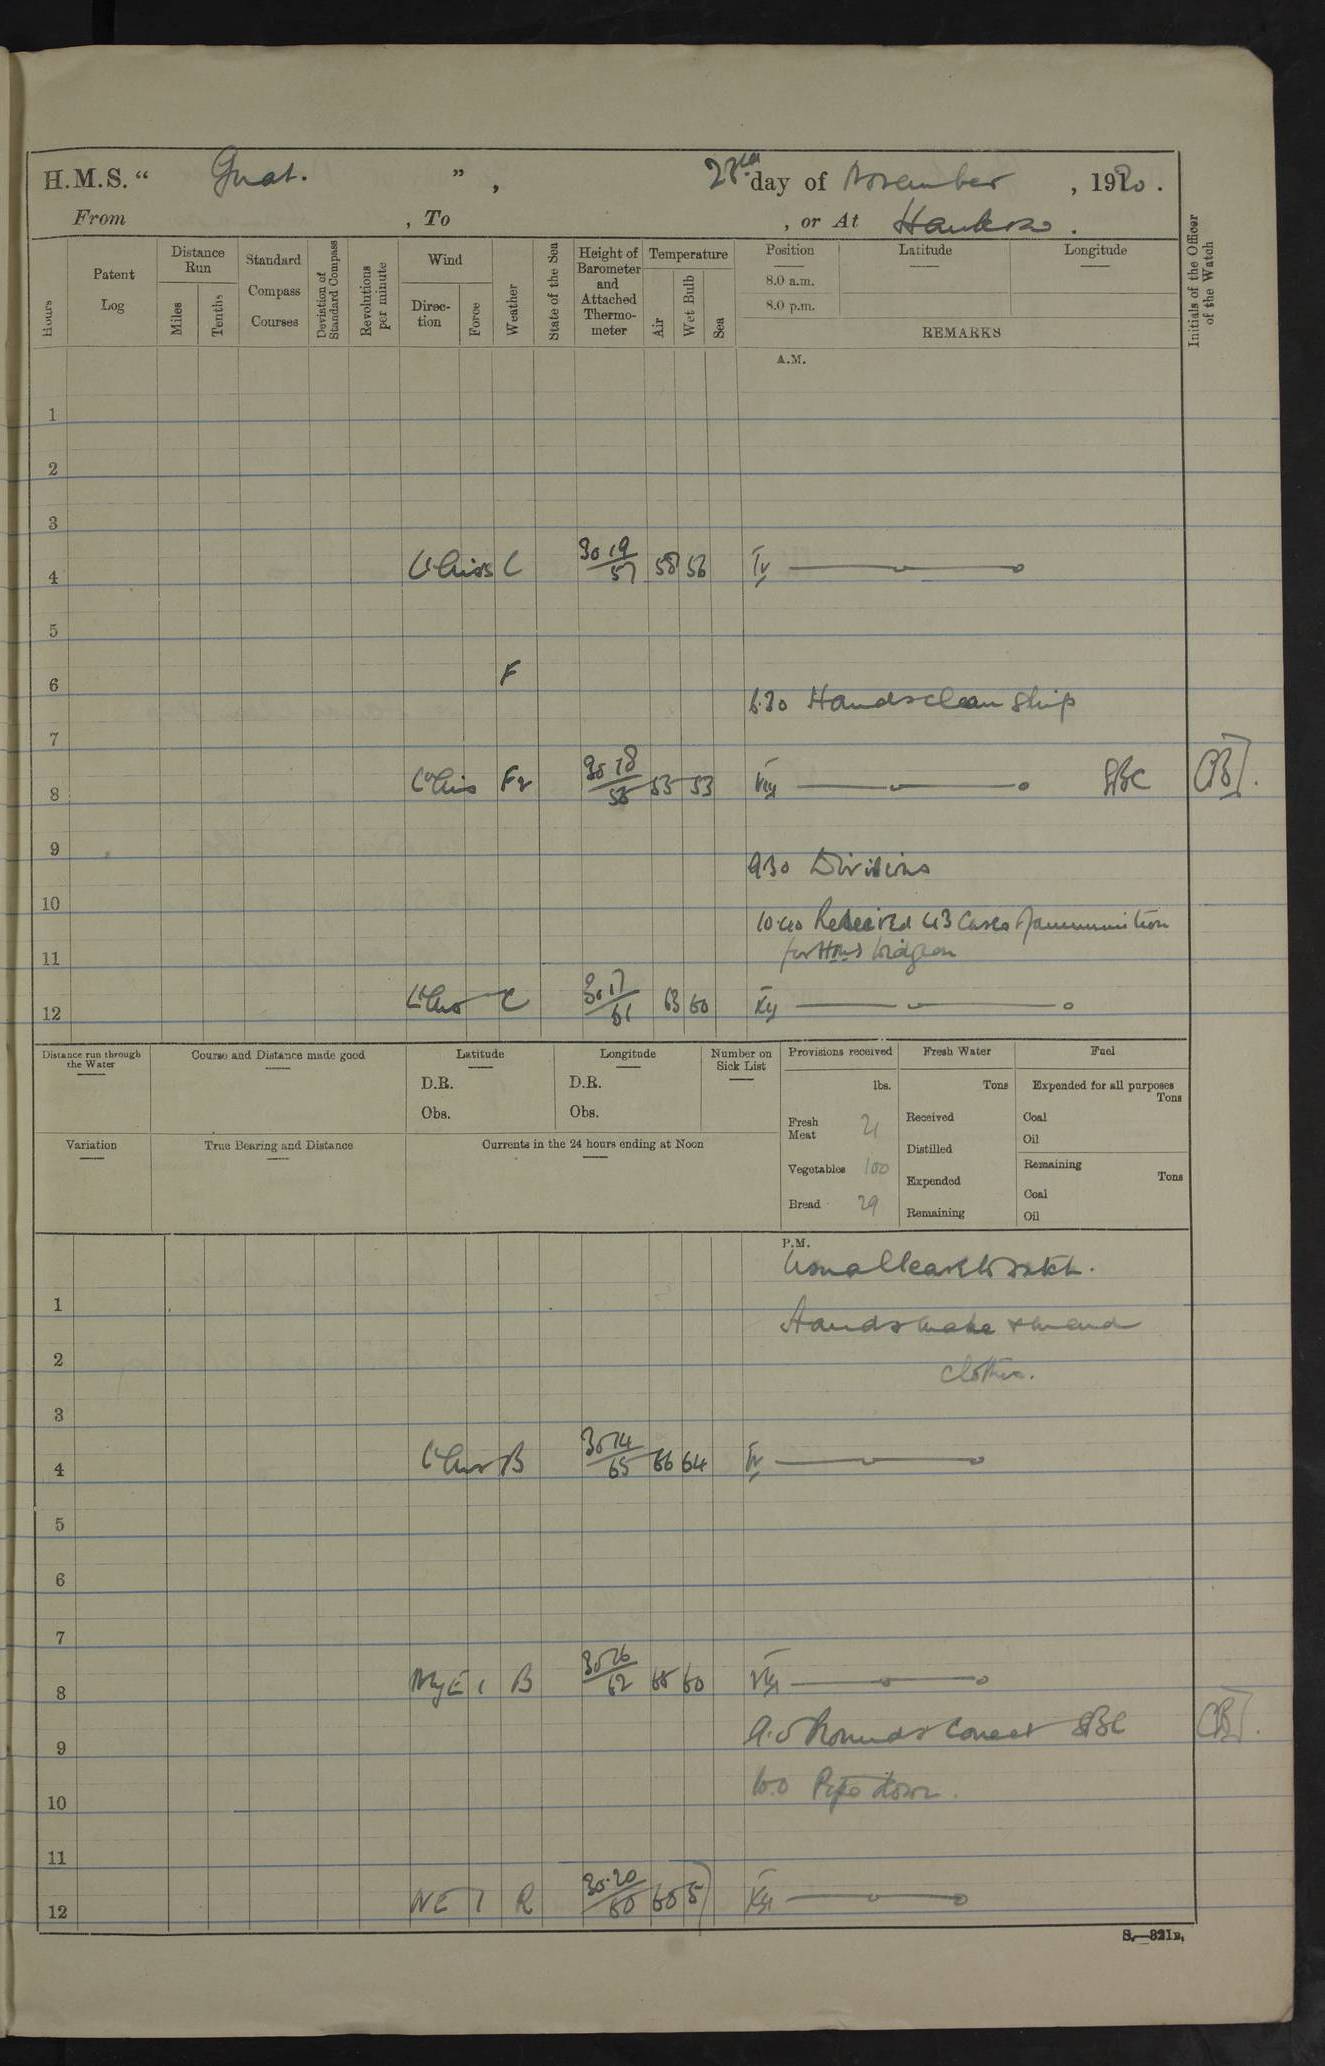 H.M.S. “ Gnat. ” , day of November , 1920 .
From , To , or At Hankow .
Hours
Patent Log
Distance Run
Miles
Tenths
Standard Compass Courses
Deviation of Standard Compass
Revolutions per minute
Wind
Direction
Force
Weather
State of the Sea
Height of Barometer and Attached Thermometer
Temperature
Air
Wet Bulb
Sea
Position
8.0 a.m.
8.0 p.m.
Latitude
Longitude
REMARKS
Initials of the Officer of the Watch
A.M.
1
2
3
4 C 30 19 / 57 58 56 IV
5
6 F
6.30 Hands clean ship
7
8 30 18 / 55 55 53 VIII SBC
9
9.30 Divisions
10
10.40 Received 43 Cases of ammunition
for HMS Widgeon
11
12 C 30 17 / 61 63 60 XII
Distance run through the Water
Course and Distance made good
Latitude
D.R.
Obs.
Longitude
D.R.
Obs.
Number on Sick List
Provisions received
lbs.
Fresh Meat 21
Vegetables 100
Bread 29
Fresh Water
Tons
Received
Distilled
Expended
Remaining
Fuel
Expended for all purposes
Tons
Coal
Oil
Remaining
Tons
Coal
Oil
Variation
True Bearing and Distance
Currents in the 24 hours ending at Noon
P.M.
Usual leave to watch.
1
Hands make & mend
2
clothes.
3
4 B 30 14 / 65 66 64 IV
5
6
7
8 NyE 1 B 62 60 VIII
9.0 Rounds Correct SBC
9
10.0 Pipe down.
10
11
12 NE 1 R 30.20 / 60 60 XII
S.—321B.